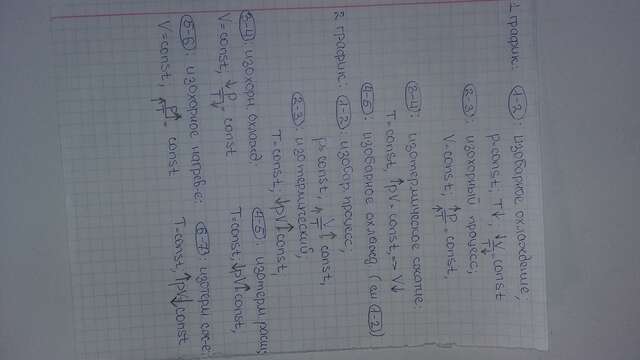 1 график: (1-2): изобарное охлаждение,
p=const; T↓, ↓V/T↓ const
(2-3): изохорный процесс,
V=const, ↑p/↑T = const,
(3-4): изотермическое сжатие:
T=const, ↑pV=const, => V↓
(4-5): изобарное охлажд (см (1-2))
2 график: (1-2): изобар процесс,
p=const, ↑V/T↑ const,
(2-3): изотермический,
T=const; ↓pV↑ const,
(3-4): изохорн охлажд: (4-5): изотерм расш:
V=const, ↓p/T↓ = const T=const, ↓pV↑ const,
(5-6): изохорное нагрев-е: (6-7): изотерм сжа
V=const, ↑p/↑T = const T=const, ↑pV↓ const